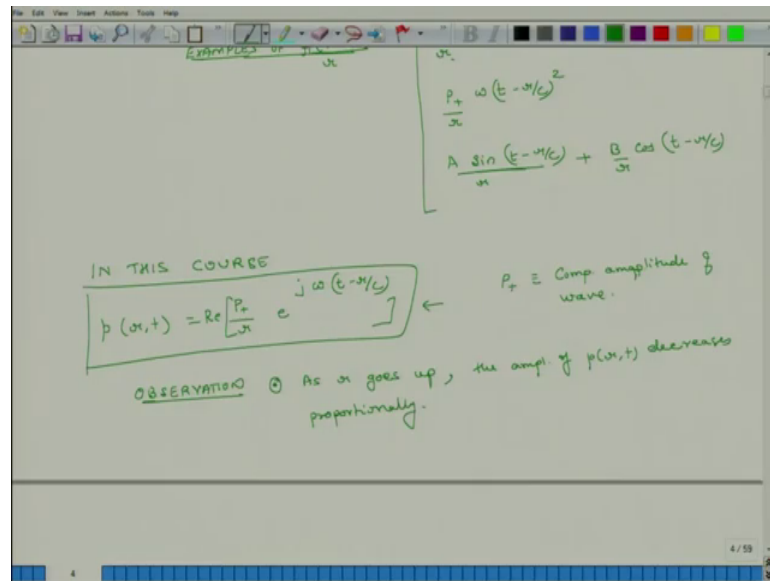 File Edit View Insert Actions Tools Help
EXAMPLES OF
r
r.
P+/r ω(t - r/c)²
A sin (t - r/c)/r + B/r cos (t - r/c)
IN THIS COURSE
p(r,t) = Re[P+/r e^jω(t - r/c)] ←
P+ ≡ Comp. amaplitude of
wave.
OBSERVATION ⊙ As r goes up, the ampl. of p(r,t) decreases
proportionally.
4 / 59
4